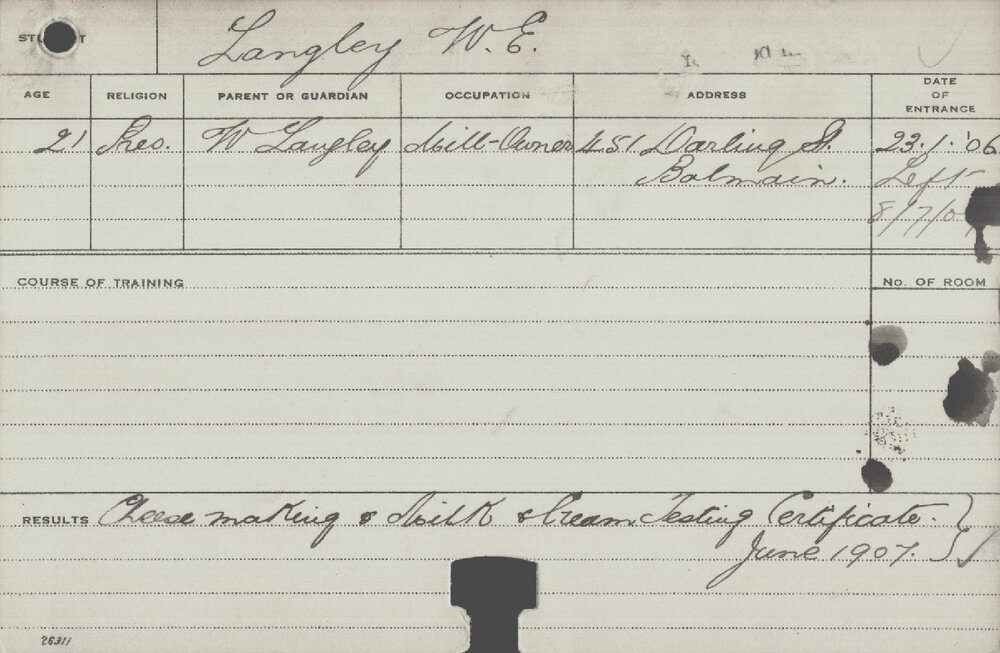 STUDENT Langley W. E.
AGE RELIGION PARENT OR GUARDIAN OCCUPATION ADDRESS DATE OF ENTRANCE
21 Pres. W Langley Mill-Owner 451 Darling St. 23.1.'06
Balmain. Left
8/7/0
COURSE OF TRAINING No. OF ROOM
RESULTS Cheese making & Milk & Cream Testing Certificate.
June 1907.
26311